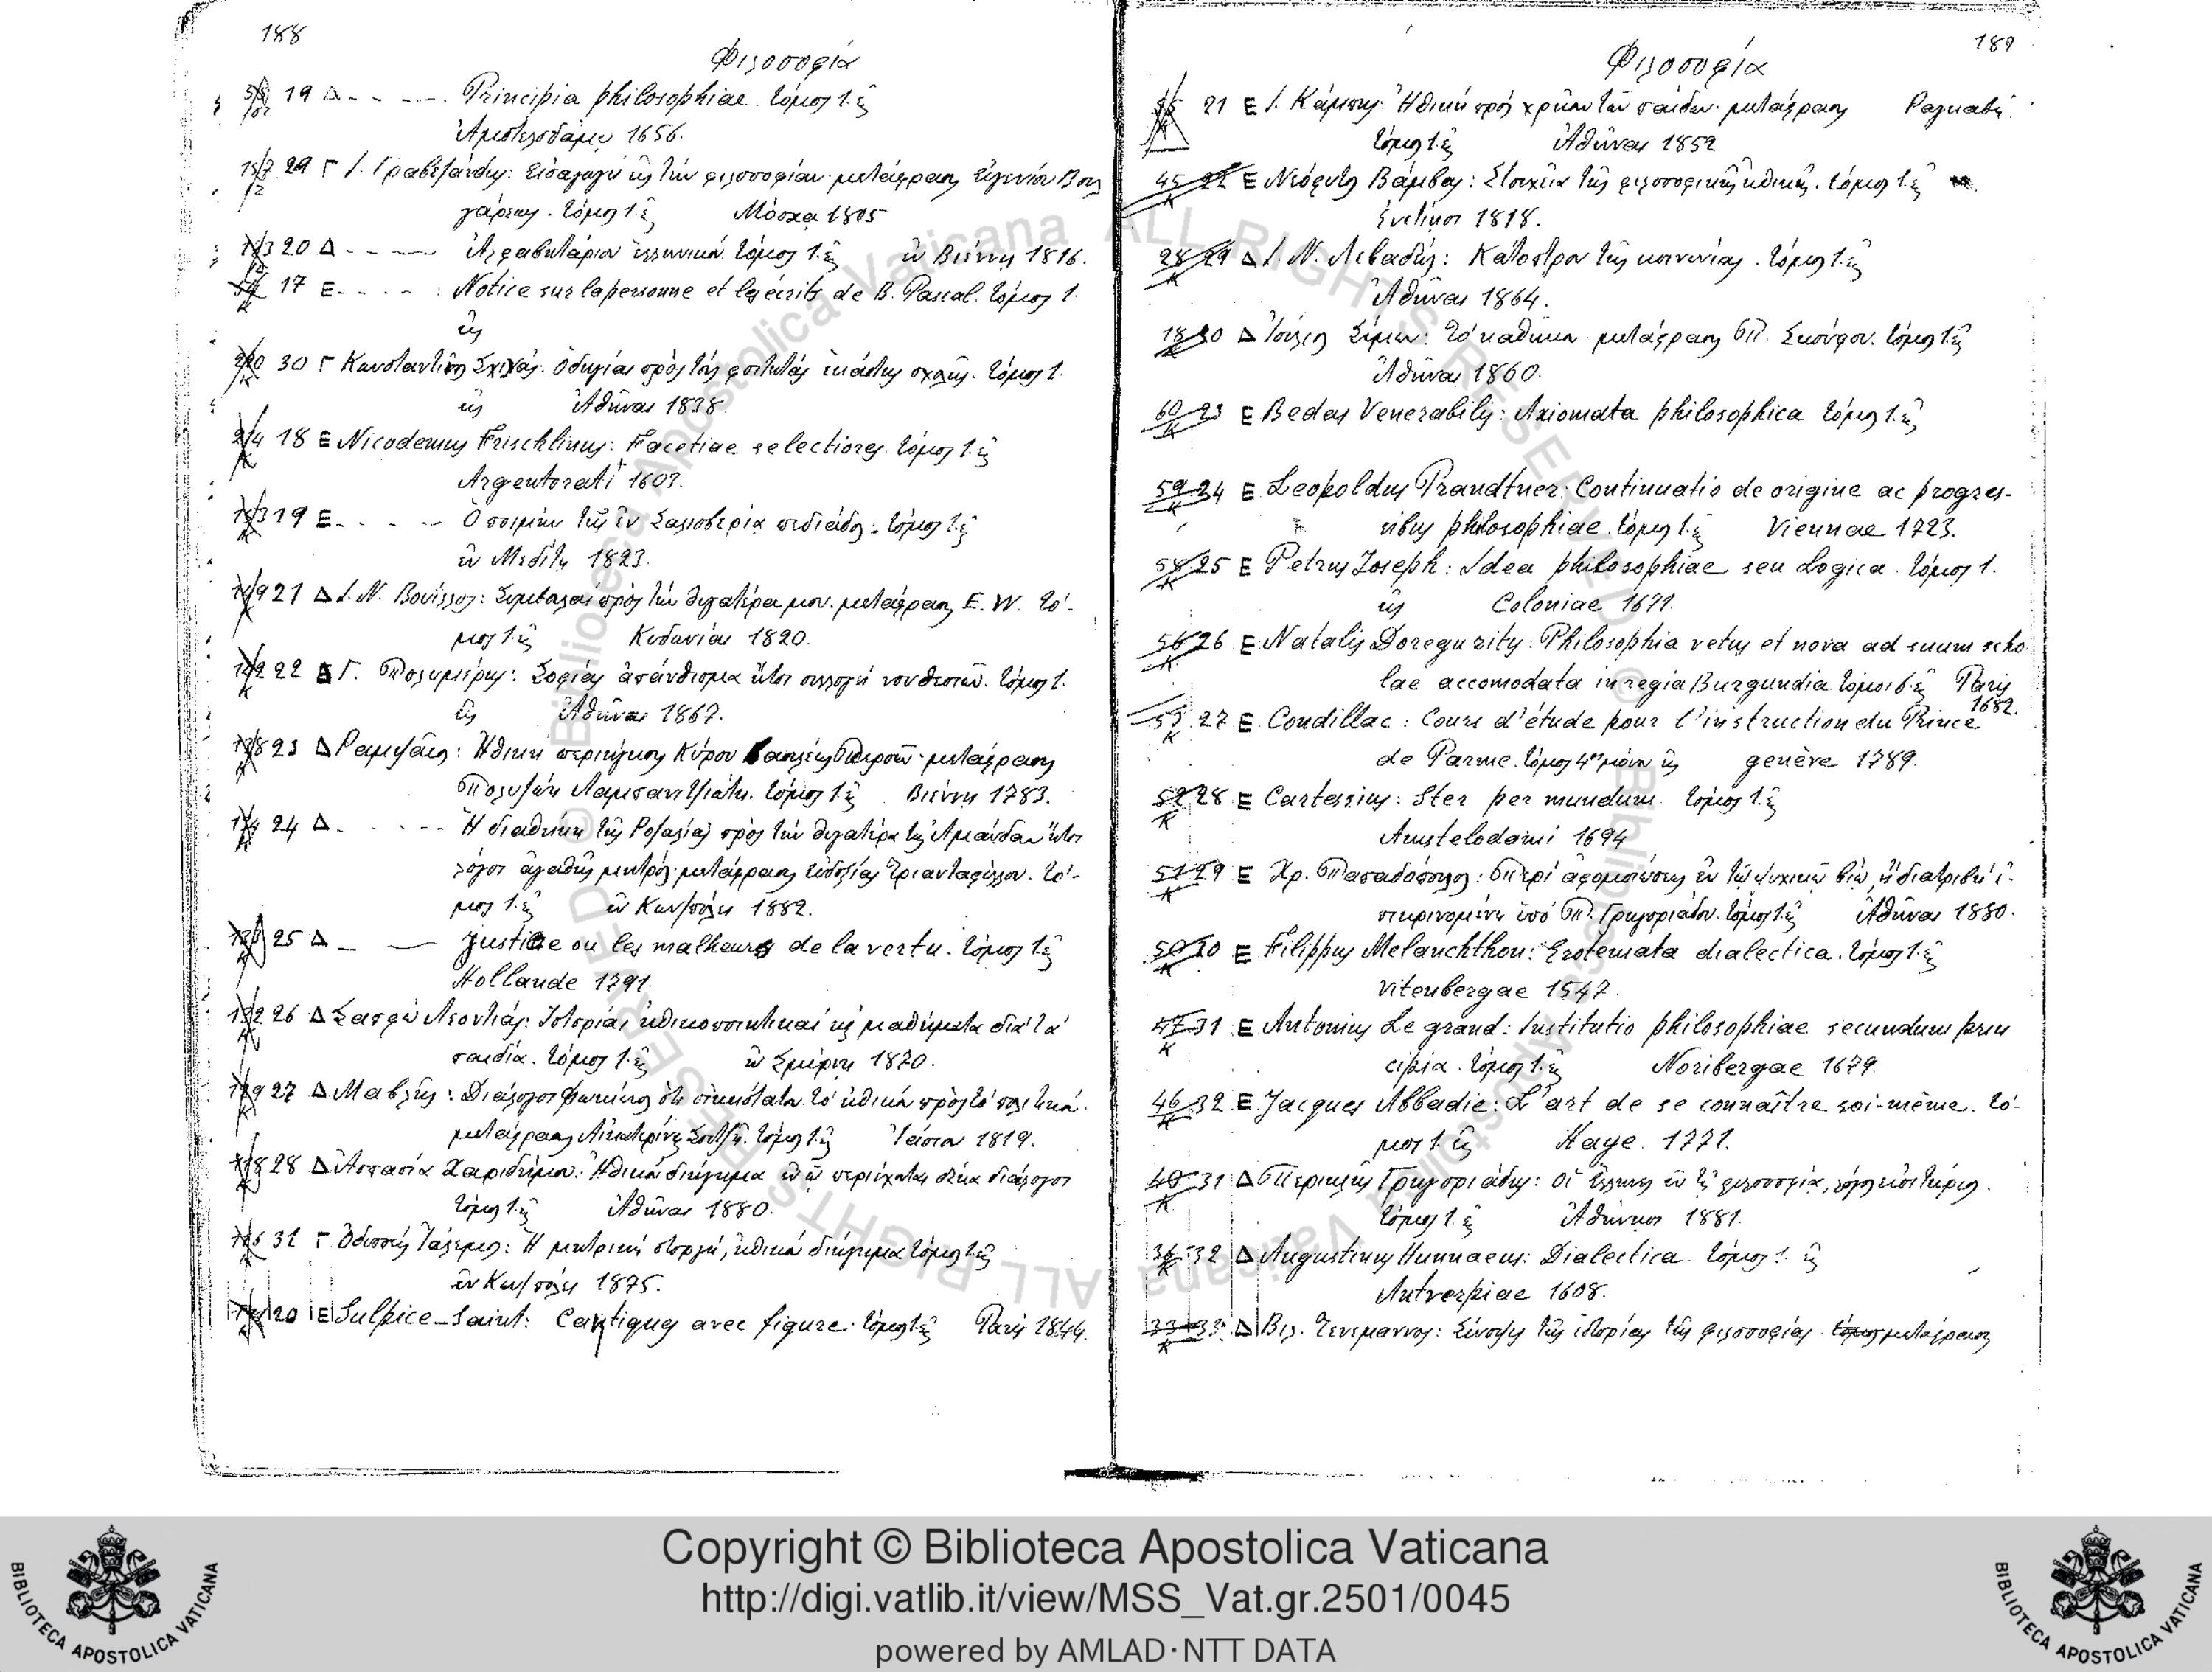 188
Φιλοσοφία
19 Δ - - - - Principia philosophiae. τόμος 1. εἰς
Ἀμστελοδάμῳ 1656.
29 Γ Ι. Γραβεζάνδης: Εἰσαγωγὴ εἰς τὴν φιλοσοφίαν μετάφρασις Εὐγενίου Βουλ
γάρεως. τόμος 1. εἰς Μόσχα 1805
20 Δ - - - - Ἀλφαβητάριον ἑλληνικόν. τόμος 1. εἰς ἐν Βιέννῃ 1816.
17 Ε - - - - : Notice sur la personne et les écrits de B. Pascal. τόμος 1.
εἰς
30 Γ Κωνσταντῖνος Σχινᾶς. Ὁδηγίαι πρὸς τοὺς φοιτητὰς ἑκάστης σχολῆς. τόμος 1.
εἰς Ἀθῆναι 1838.
18 Ε Nicodemus Frischlinus: Facetiae selectiores. τόμος 1. εἰς
Argentorati 1603.
19 Ε - - - - Ὁ ποιμὴν τῆς ἐν Σαλισβερίᾳ πεδιάδος. τόμος 1. εἰς
ἐν Μελίτῃ 1823.
21 Δ Ι. Ν. Βουίλλος: Συμβουλαὶ πρὸς τὴν θυγατέρα μου. μετάφρασις Ε. Ν. τό-
μος 1. εἰς Κυδωνίαι 1820.
22 Δ Γ. Πολυμέρης: Σοφίας ἀπάνθισμα ἤτοι συλλογὴ νουθεσιῶν. τόμος 1.
εἰς Ἀθῆναι 1867.
23 Δ Ραμψαῖος: Ἠθικὴ περιήγησις Κύρου βασιλέως Περσῶν μετάφρασις
Πολυζώη Λαμπανιτζιώτη. τόμος 1. εἰς Βιέννη 1783.
24 Δ - - - - Ἡ διαθήκη τῆς Ροζαλίας πρὸς τὴν θυγατέρα της Ἀμάνδαν ἤτοι
λόγοι ἀγαθῆς μητρός. μετάφρασις Εὐδοξίας Τριανταφύλλου. τό-
μος 1. εἰς ἐν Κων/πόλει 1882.
25 Δ - - Justine ou les malheurs de la vertu. τόμος 1. εἰς
Hollande 1791.
26 Δ Σαπφὼ Λεοντιάς: Ἱστορίαι ἠθικοποιητικαὶ εἰς μαθήματα διὰ τὰ
παιδία. τόμος 1. εἰς ἐν Σμύρνῃ 1870.
27 Δ Μαβλῆς: Διάλογοι Φωκίωνος ὅτι οἰκειότατον τὸ ἠθικὸν πρὸς τὸ πολιτικόν.
μετάφρασις Αἰκατερίνης Σούτζη. τόμος 1. εἰς Ἰάσιον 1819.
28 Δ Ἀσπασία Χαριδήμου: Ἠθικὸν διήγημα ἐν ᾧ περιέχονται δέκα διάλογοι
τόμος 1. εἰς Ἀθῆναι 1880.
31 Γ Ὀδυσσεὺς Ἰάλεμος: Ἡ μητρικὴ στοργή, ἠθικὸν διήγημα τόμος 1. εἰς
ἐν Κων/πόλει 1875.
20 Ε Sulpice-Saint: Cantiques avec figure. τόμος 1. εἰς Paris 1844.
189
Φιλοσοφία
21 Ε Ι. Κάμπης: Ἠθικὴ πρὸς χρῆσιν τῶν παίδων. μετάφρασις Ραγκαβῆ.
τόμος 1. εἰς Ἀθῆναι 1852
45 22 Ε Νεόφυτος Βάμβας: Στοιχεῖα τῆς φιλοσοφικῆς ἠθικῆς. τόμος 1. εἰς
Ἐνετίῃσι 1818.
28 29 Δ Ι. Ν. Λεβαδεύς: Κάτοπτρον τῆς κοινωνίας. τόμος 1. εἰς
Ἀθῆναι 1864.
18 30 Δ Ἰούλιος Σίμων: τὸ καθῆκον μετάφρασις Π. Σκούφου. τόμος 1. εἰς
Ἀθῆναι 1860.
60 23 Ε Bedas Venerabilis: Axiomata philosophica τόμος 1. εἰς
59 24 Ε Leopoldus Prandtner: Continuatio de origine ac progres-
sibus philosophiae. τόμος 1. εἰς Viennae 1723.
58 25 Ε Petrus Joseph: Idea philosophiae seu Logica. τόμος 1.
εἰς Coloniae 1671.
56 26 Ε Natalis Doregurity: Philosophia vetus et nova ad suum scho
lae accomodata in regia Burgundia. τόμοι 6. εἰς Paris
1682.
53 27 Ε Condillac: Cours d'étude pour l'instruction du Prince
de Parme. τόμος 4ος μόνον εἰς genève 1789.
52 28 Ε Cartessius: Iter per mundum. τόμος 1. εἰς
Amstelodami 1694
51 29 Ε Χρ. Παπαδόπουλος: Περὶ ἀφομοιώσεως ἐν τῷ ψυχικῷ βίῳ, ἡ διατριβὴ ἐ-
πικρινομένη ὑπὸ Π. Γρηγοριάδου. τόμος 1. εἰς Ἀθῆναι 1880.
50 30 Ε Filippus Melanchthon: Erotemata dialectica. τόμος 1. εἰς
Vitenbergae 1547.
47 31 Ε Antonius Le grand: Institutio philosophiae secundum prin
cipia. τόμος 1. εἰς Noribergae 1679.
46 32 Ε Jacques Abbadie: L'art de se connaître soi-même. τό-
μος 1. εἰς Haye. 1771.
40 31 Δ Περικλῆς Γρηγοριάδης: οἱ Ἕλληνες ἐν τῇ φιλοσοφίᾳ, λόγος εἰσιτήριος.
τόμος 1. εἰς Ἀθήνησι 1881.
36 32 Δ Augustinus Hunnaeus: Dialectica. τόμος 1. εἰς
Antverpiae 1608.
33 33 Δ Βιλ. Τενεμαννος: Σύνοψις τῆς ἱστορίας τῆς φιλοσοφίας τόμος μετάφρασις
Copyright © Biblioteca Apostolica Vaticana
http://digi.vatlib.it/view/MSS_Vat.gr.2501/0045
powered by AMLAD·NTT DATA
BIBLIOTECA APOSTOLICA VATICANA
BIBLIOTECA APOSTOLICA VATICANA